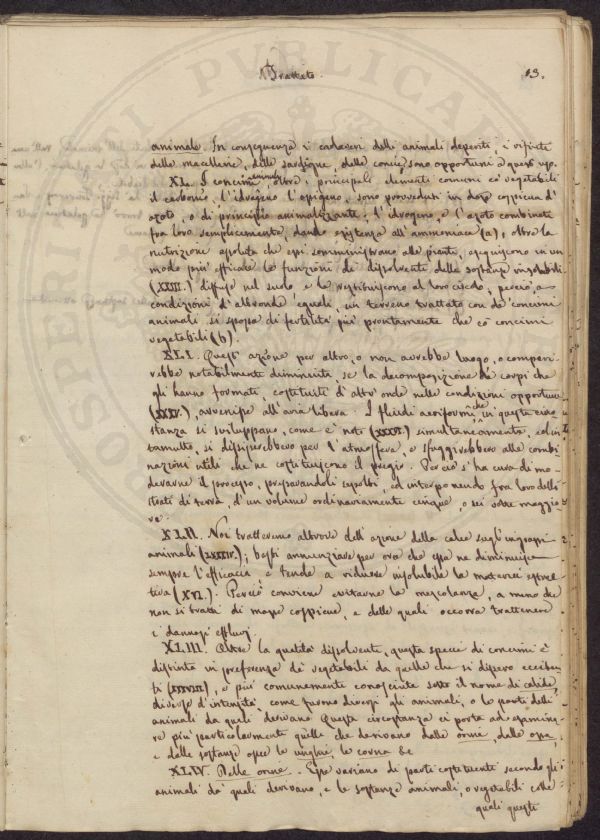 Trattato.
13.
animale. In conseguenza i cadaveri delli animali deperiti, i rifiuti
delle macellerie, delle sardigne, delle concie, sono opportuni a quest' uso.
XL. I concimi animali, oltre i principali elementi comuni co' vegetabili
il carbonio, l'idrogeno, l'ossigeno, sono provveduti in dose copiosa d'
azoto, o di principio animalizzante; l'idrogeno, e l'azoto combinati
fra loro semplicemente, dando esistenza all'ammoniaca (a), oltre la
nutrizione assoluta che essi somministrano alle piante, eseguiscono in un
modo più efficace le funzioni di dissolvente delle sostanze insolubili
(XXIII.) diffuse nel suolo e le restituiscono al loro circolo, perciò, a
condizioni d'altronde eguali, un terreno trattato con de' concimi
animali si sposa di fertilità più prontamente che co' concimi
vegetabili (b).
XLI. Quest' azione per altro, o non avrebbe luogo, o compari-
rebbe notabilmente diminuita, se la decomposizione de' corpi che
gli hanno formati, costituiti d'altr' onde nelle condizioni opportune
(XXXV.), avvenisse all'aria libera. I fluidi aeriformi che in questa circo-
stanza si sviluppano, come è noto (XXXVI.) simultaneamente, ed in
tumulto, si disperderebbero per l'atmosfera, e sfuggirebbero alle combi
nazioni utili che ne costituiscono il pregio. Perciò s'ha cura di mo-
derarne il processo, preparandoli sepolti, ed interponendo fra loro delli
strati di terra, d'un volume ordinariamente cinque, o sei volte maggio
re.
XLII. Noi tratteremo altrove dell'azione della calce sugl' ingrassi
animali (LXXXIV.); basti annunziare per ora che essa ne diminuisce
sempre l'efficacia e tende a ridurre insolubile la materia estrat-
tiva (XVI.). Perciò conviene evitarne la mescolanza, a meno che
non si tratti di masse copiose, e delle quali occorra trattenere
i dannosi effluvj.
XLIII. Oltre la qualità dissolvente, questa specie di concimi è
distinta in preferenza de' vegetabili da quella che si dissero eccitan
ti (XXXVIII.), e più comunemente conosciute sotto il nome di calide,
diverse d'intensità, come furono diversi gli animali, o le parti delli
animali da' quali derivano. Questa circostanza ci porta ad esamina-
re più particolarmente quelle che derivano dalle orine, dalle ossa,
e dalle sostanze ossee le unghie, le corna &c
XLIV. Delle orine. Esse variano di parti costituenti secondo gli
animali da' quali derivano, e le sostanze animali, o vegetabili colle
quali questi